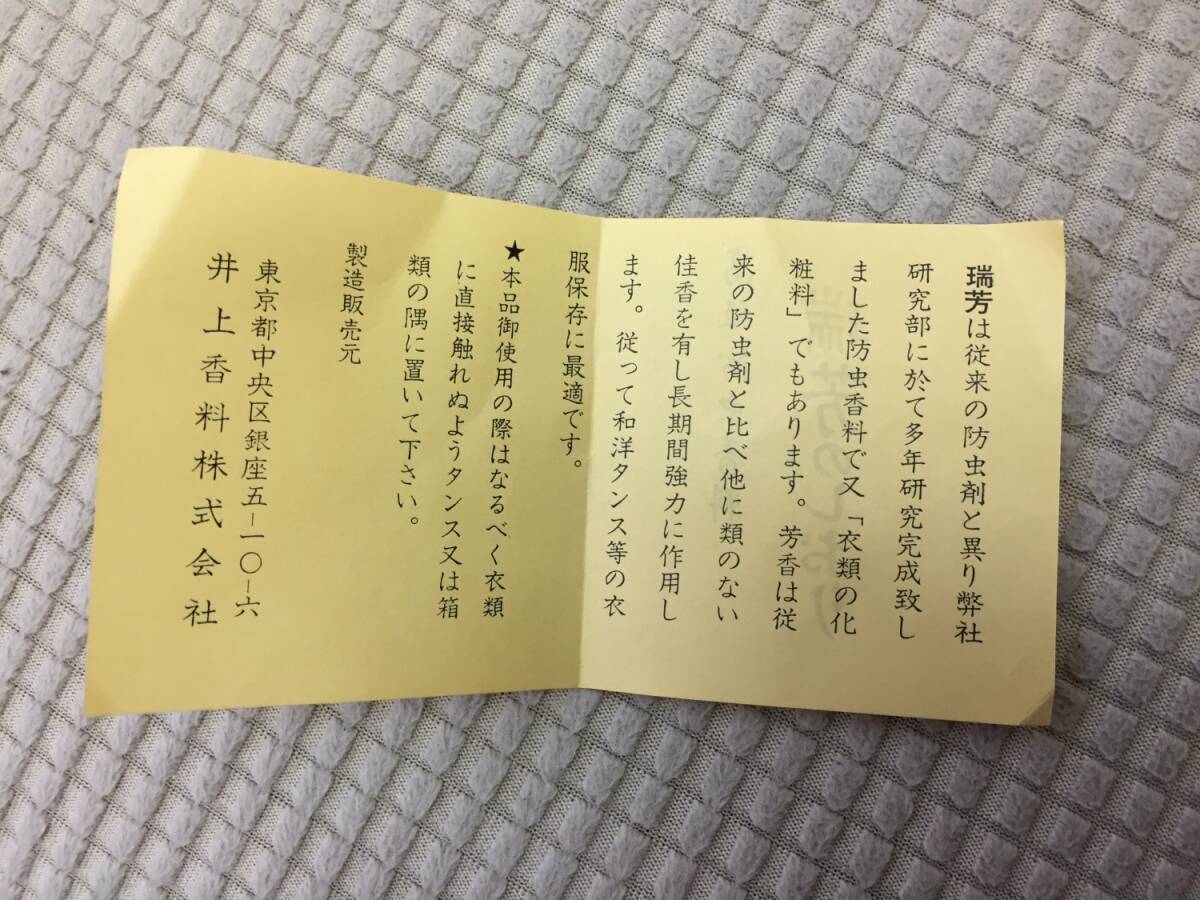 瑞芳は従来の防虫剤と異り弊社
研究部に於て多年研究完成致し
ました防虫香料で又「衣類の化
粧料」でもあります。芳香は従
来の防虫剤と比べ他に類のない
佳香を有し長期間強力に作用し
ます。従って和洋タンス等の衣
服保存に最適です。
★本品御使用の際はなるべく衣類
に直接触れぬようタンス又は箱
類の隅に置いて下さい。
製造販売元
東京都中央区銀座五-一〇-六
井上香料株式会社